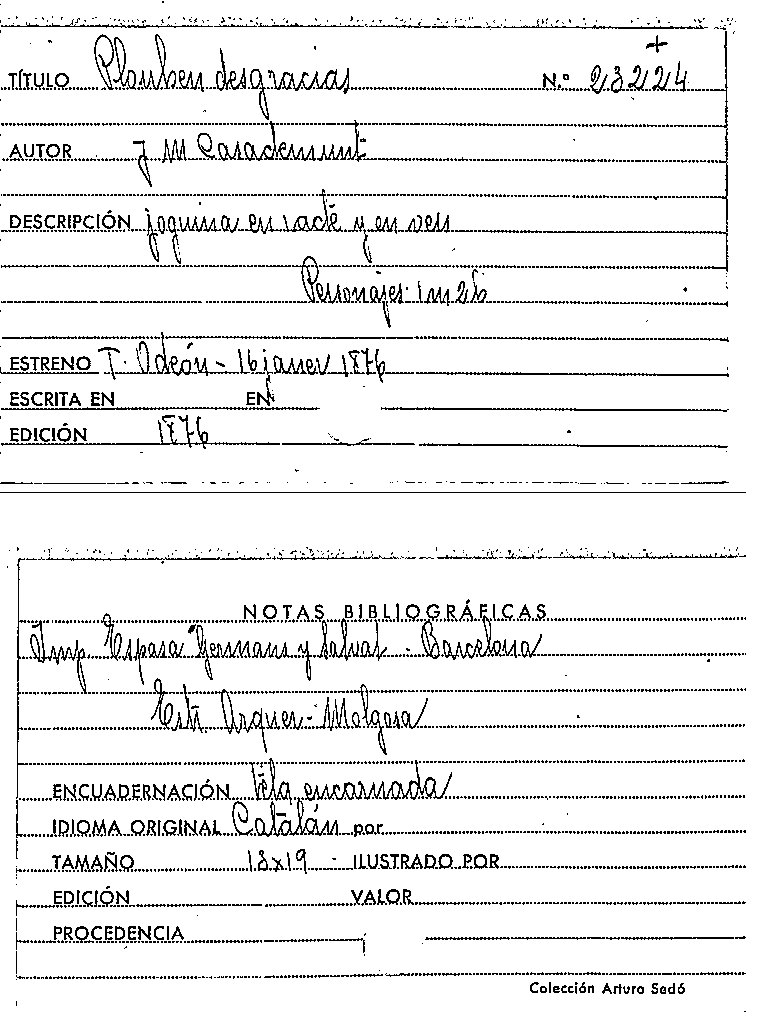 +
TÍTULO Plouhen desgracias N.º 23224
AUTOR J M Casademunt
DESCRIPCIÓN joguina en 1 acte y en vers
Personajes 1 m 2 h
ESTRENO T. Odeón - 16 janer 1876
ESCRITA EN EN
EDICIÓN 1876
NOTAS BIBLIOGRÁFICAS
Imp. Espasa Germans y Salvat - Barcelona
Estr. Arquer - Molgosa
ENCUADERNACIÓN Tela encarnada
IDIOMA ORIGINAL Catalán por
TAMAÑO 13x19 - ILUSTRADO POR
EDICIÓN VALOR
PROCEDENCIA
Colección Arturo Sedó